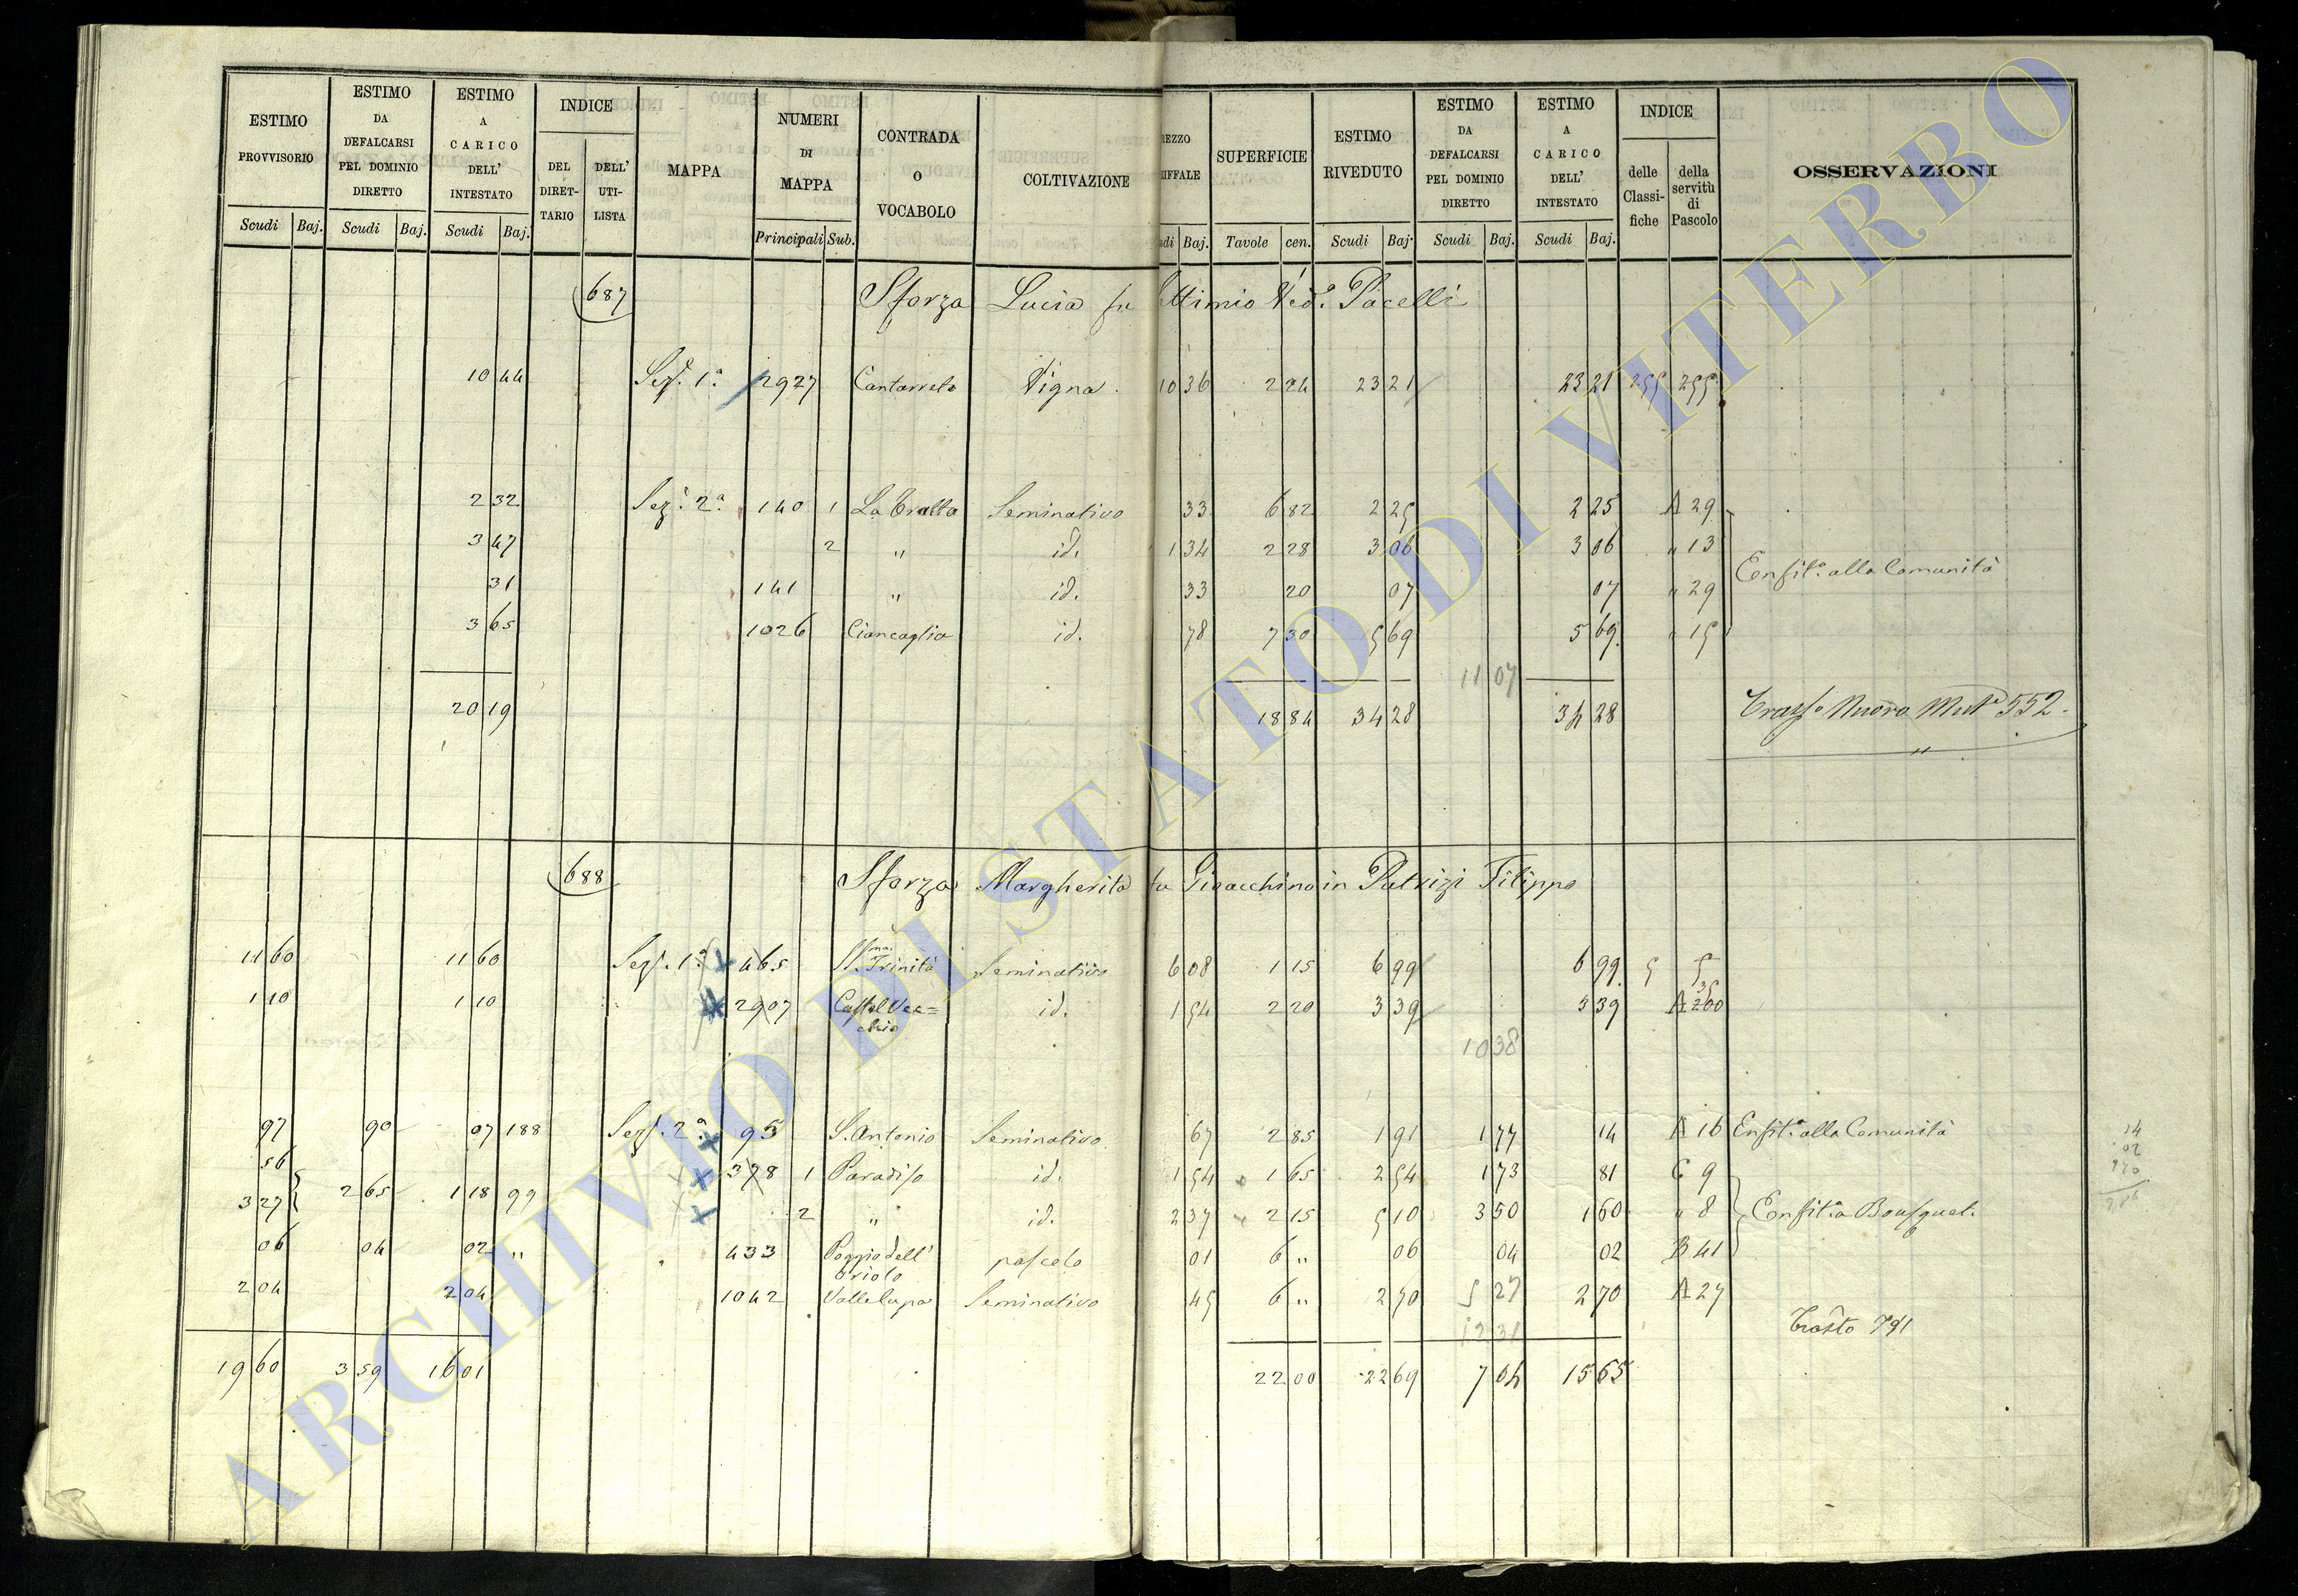 ESTIMO PROVVISORIO Scudi Baj.
ESTIMO DA DEFALCARSI PEL DOMINIO DIRETTO Scudi Baj.
ESTIMO A CARICO DELL' INTESTATO Scudi Baj.
INDICE DEL DIRET- TARIO DELL' UTI- LISTA
MAPPA
NUMERI DI MAPPA Principali Sub.
CONTRADA O VOCABOLO
COLTIVAZIONE
REZZO RIFFALE udi Baj.
SUPERFICIE Tavole cen.
ESTIMO RIVEDUTO Scudi Baj.
ESTIMO DA DEFALCARSI PEL DOMINIO DIRETTO Scudi Baj.
ESTIMO A CARICO DELL' INTESTATO Scudi Baj.
INDICE delle Classi- fiche della servitù di Pascolo
OSSERVAZIONI
687 Sforza Lucia fu ettimio Ved.a Pacelli
10 44 Sez. 1a 2927 Cantarreto Vigna 10 36 2 24 23 21 23 21 255 255
2 32 Sez. 2a 140 1 Seminativo 33 6 82 2 25 2 25 A 29
3 47 2 " id. 1 34 2 28 3 06 3 06 " 13
Enfit.a alla Comunità
31 141 " id. 33 20 07 07 " 29
3 65 1026 Ciancaglia id. 78 7 30 5 69 5 69 " 15
11 07
20 19 18 84 34 28 34 28 552
"
688 Sforza Margherita fu Gioacchino in Patrizi Filippo
11 60 11 60 Sez. 1a 465 SS.ma Trinità Seminativo 6 08 1 15 6 99 6 99 5 5
1 10 1 10 2907 Castel Vec= chio id. 1 54 2 20 3 39 3 39 A 200 35
10 38
97 90 07 188 Sez. 2a 95 S. Antonio Seminativo 67 2 85 1 91 1 77 14 A 16 Enfit.a alla Comunità
56 378 1 Paradiso id. 1 54 1 65 2 54 1 73 81 C 9
3 27 2 65 1 18 99 2 " id. 2 37 2 15 5 10 3 50 1 60 " 8 Enfit.a Bousquet
06 04 02 " 433 Poggio dell' Oriolo pascolo 01 6 " 06 04 02 B 41
2 04 2 04 1042 Valle Cupa Seminativo 45 6 " 2 70 5 27 2 70 A 27
12 31
791
19 60 3 59 16 01 22 00 22 69 7 04 15 65
14
02
ARCHIVIO DI STATO DI VITERBO